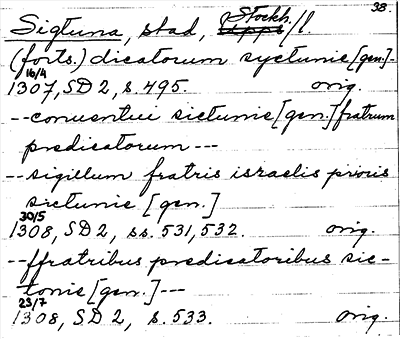 38.
Sigtuna, stad, Stockh. Upps/l.
(forts.) dicatorum syctunie [gen.]-
16/4
1307, SD 2, s. 495. orig.
--conuentui sictunie [gen.] fratrum
predicatorum ---
--sigillum fratris israelis prioris
sictunie [gen.]
30/5
1308, SD 2, ss. 531, 532. orig.
--ffratribus predicatoribus sic-
tonie [gen.] ---
23/7
1308, SD 2, s. 533. orig.